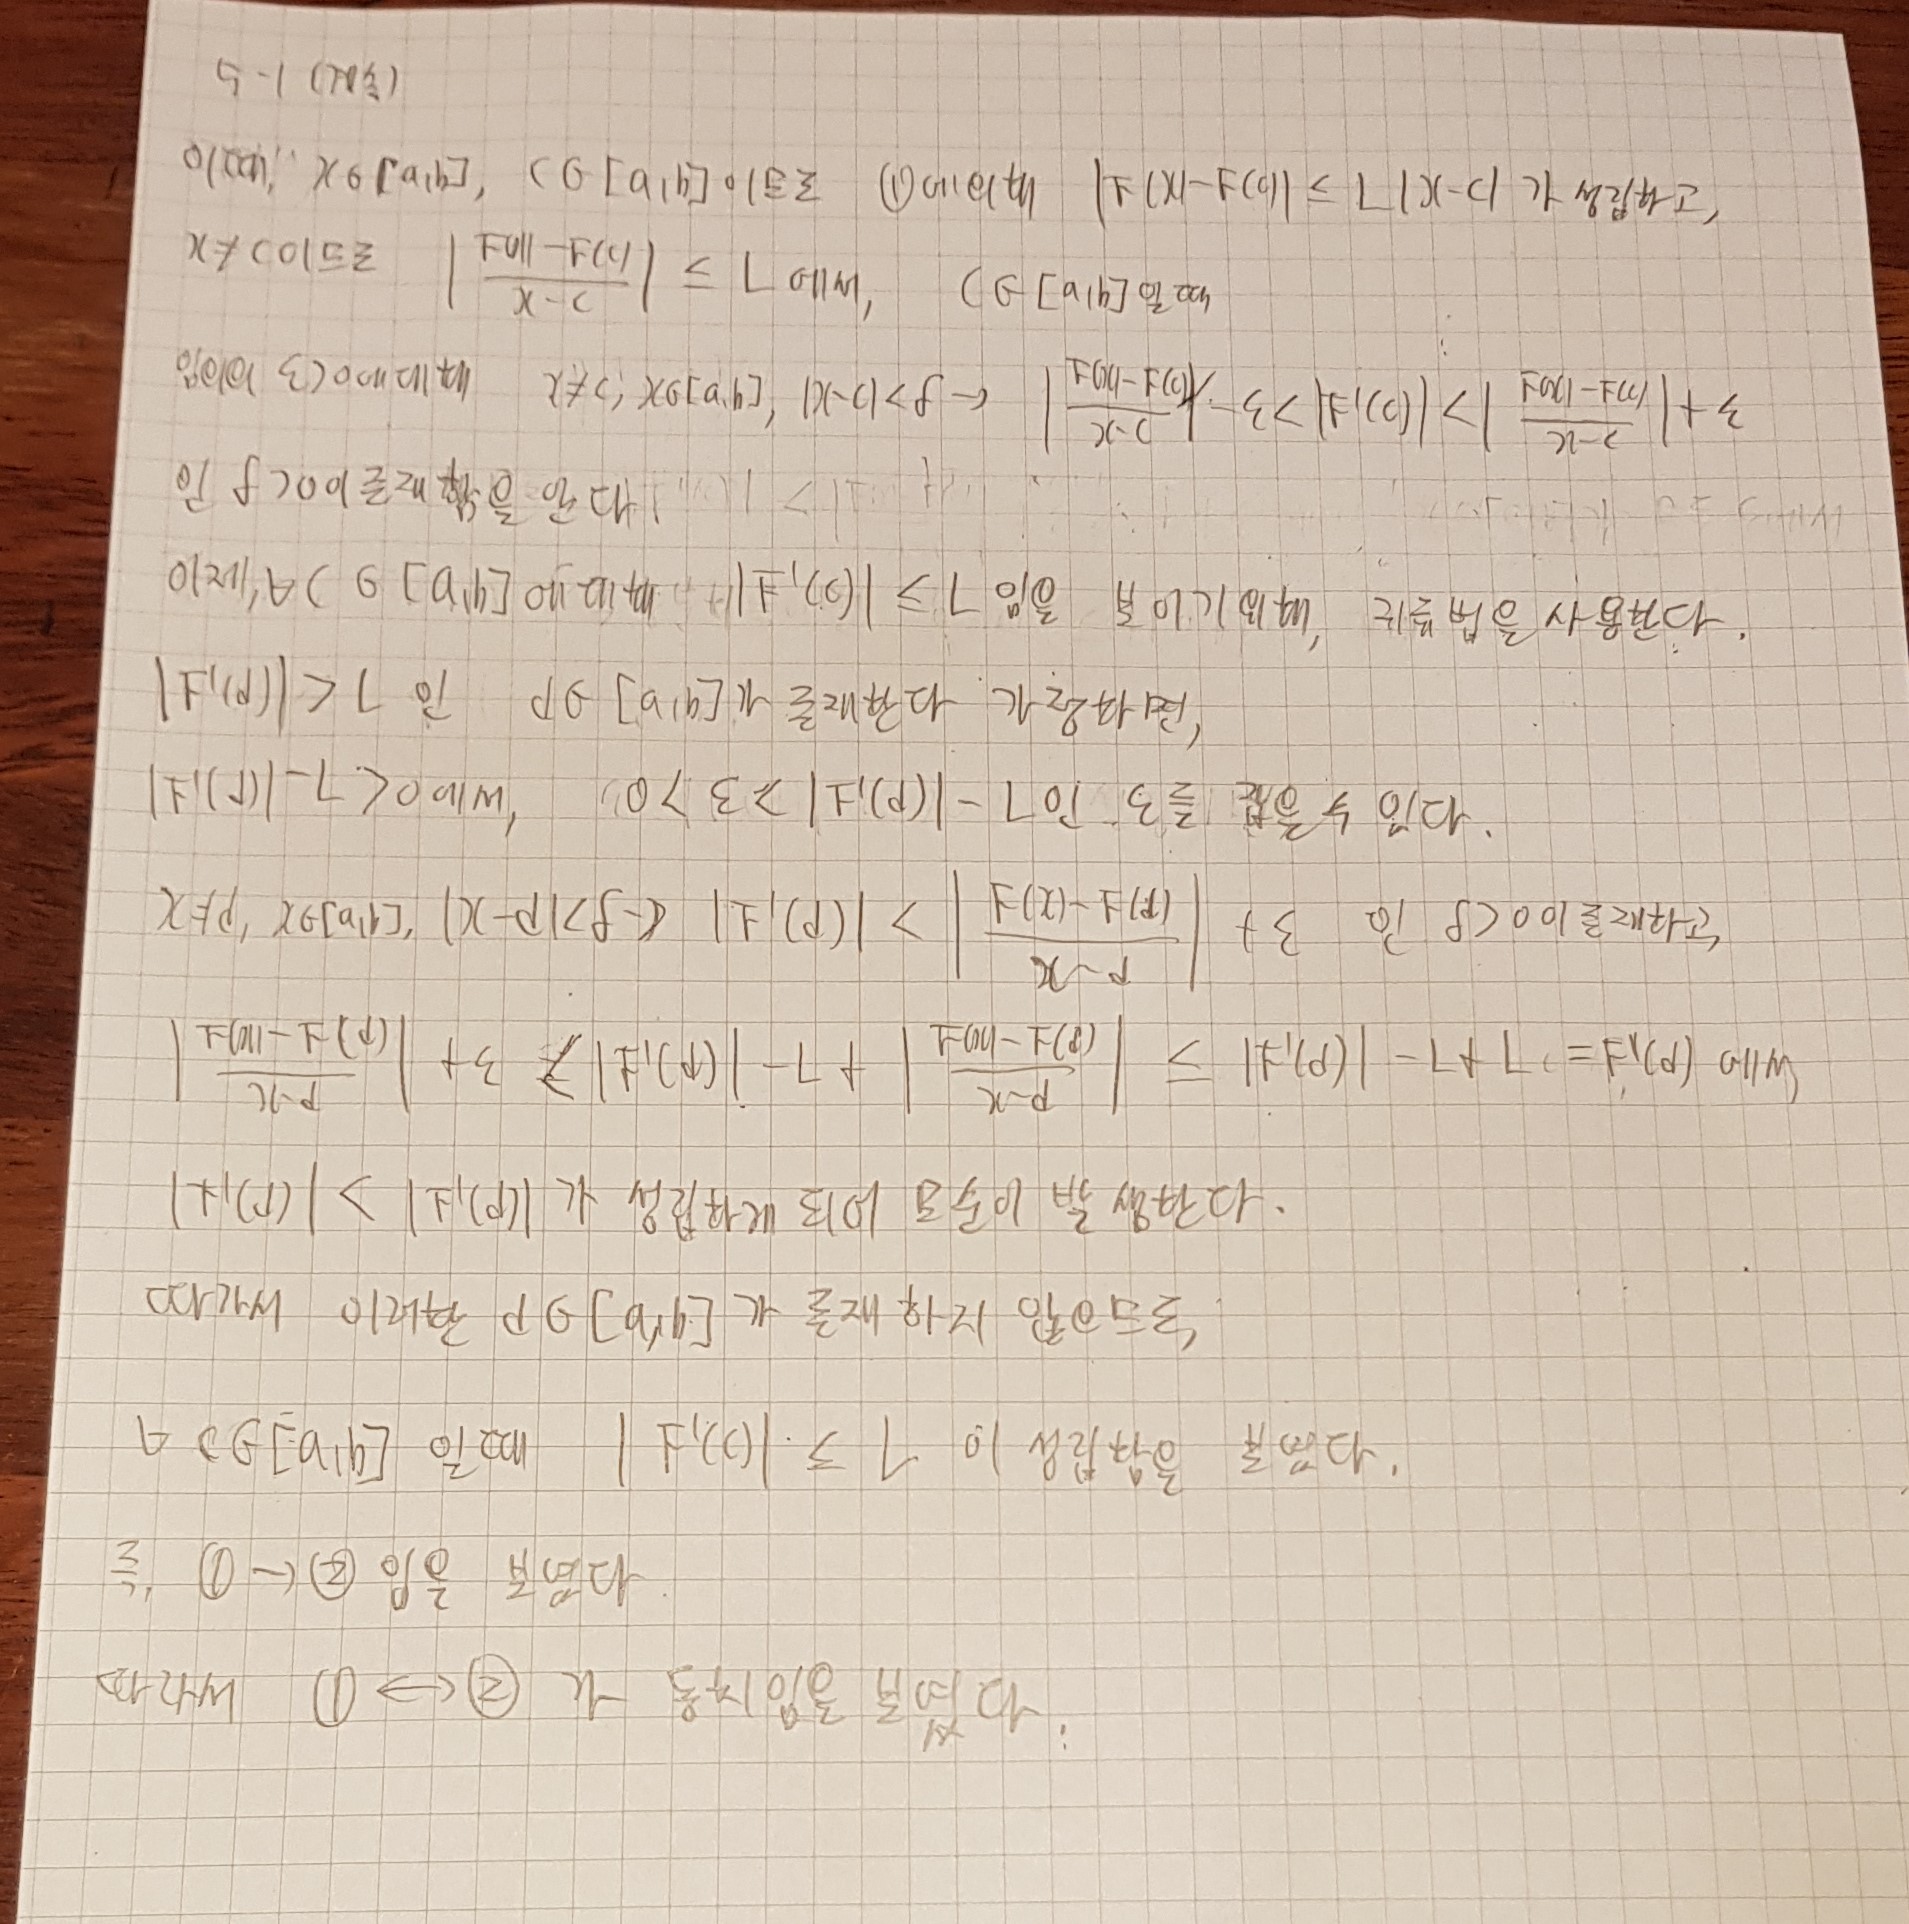 5-1 (계속)
이때, x∈[a,b], c∈[a,b]이므로 ①에 의해 |f(x)-f(c)| ≤ L|x-c| 가 성립하고,
x≠c이므로 |(f(x)-f(c))/(x-c)| ≤ L 에서, c∈[a,b]일 때
임의의 ε>0에 대해 x≠c, x∈[a,b], |x-c|<δ → |(f(x)-f(c))/(x-c)|-ε<|f'(c)|<|(f(x)-f(c))/(x-c)|+ε
인 δ>0이 존재함을 안다.
이제, ∀c∈[a,b]에 대해 |f'(c)| ≤ L 임을 보이기 위해, 귀류법을 사용한다.
|f'(d)| > L 인 d∈[a,b]가 존재한다 가정하면,
|f'(d)|-L>0에서, 0<ε≤|f'(d)|-L인 ε를 잡을 수 있다.
x≠d, x∈[a,b], |x-d|<δ → |f'(d)| < |(f(x)-f(d))/(x-d)| + ε 인 δ>0이 존재하고,
|(f(x)-f(d))/(x-d)| + ε ≤ |f'(d)|-L+|(f(x)-f(d))/(x-d)| ≤ |f'(d)|-L+L = f'(d)에서
|f'(d)| < |f'(d)| 가 성립하게 되어 모순이 발생한다.
따라서 이러한 d∈[a,b]가 존재하지 않으므로,
∀c∈[a,b]일 때 |f'(c)| ≤ L 이 성립함을 보였다.
즉, ①→②임을 보였다.
따라서 ①↔②가 동치임을 보였다.